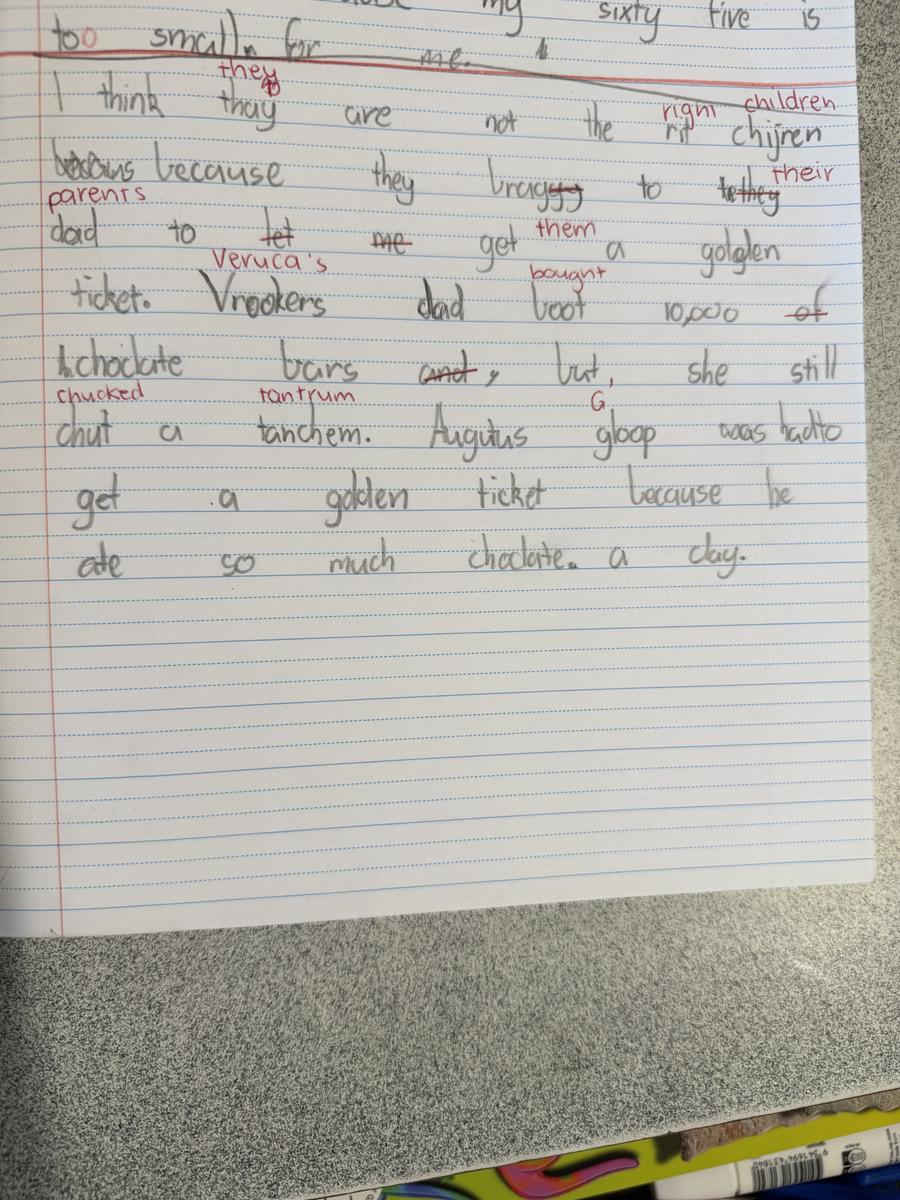 my sixty five is
too small for me.
they
I think thay are not the rit chijren
right children
becaus because they braggg to to they
their
parents
dad to let me get them a golglen
Veruca's bought
ticket. Vrookers dad boot 10,000 of
choclate bars and, but, she still
chucked tantrum G
chut a tanchem. Augutus gloop was hadto
get a golden ticket because he
ate so much choclate. a day.